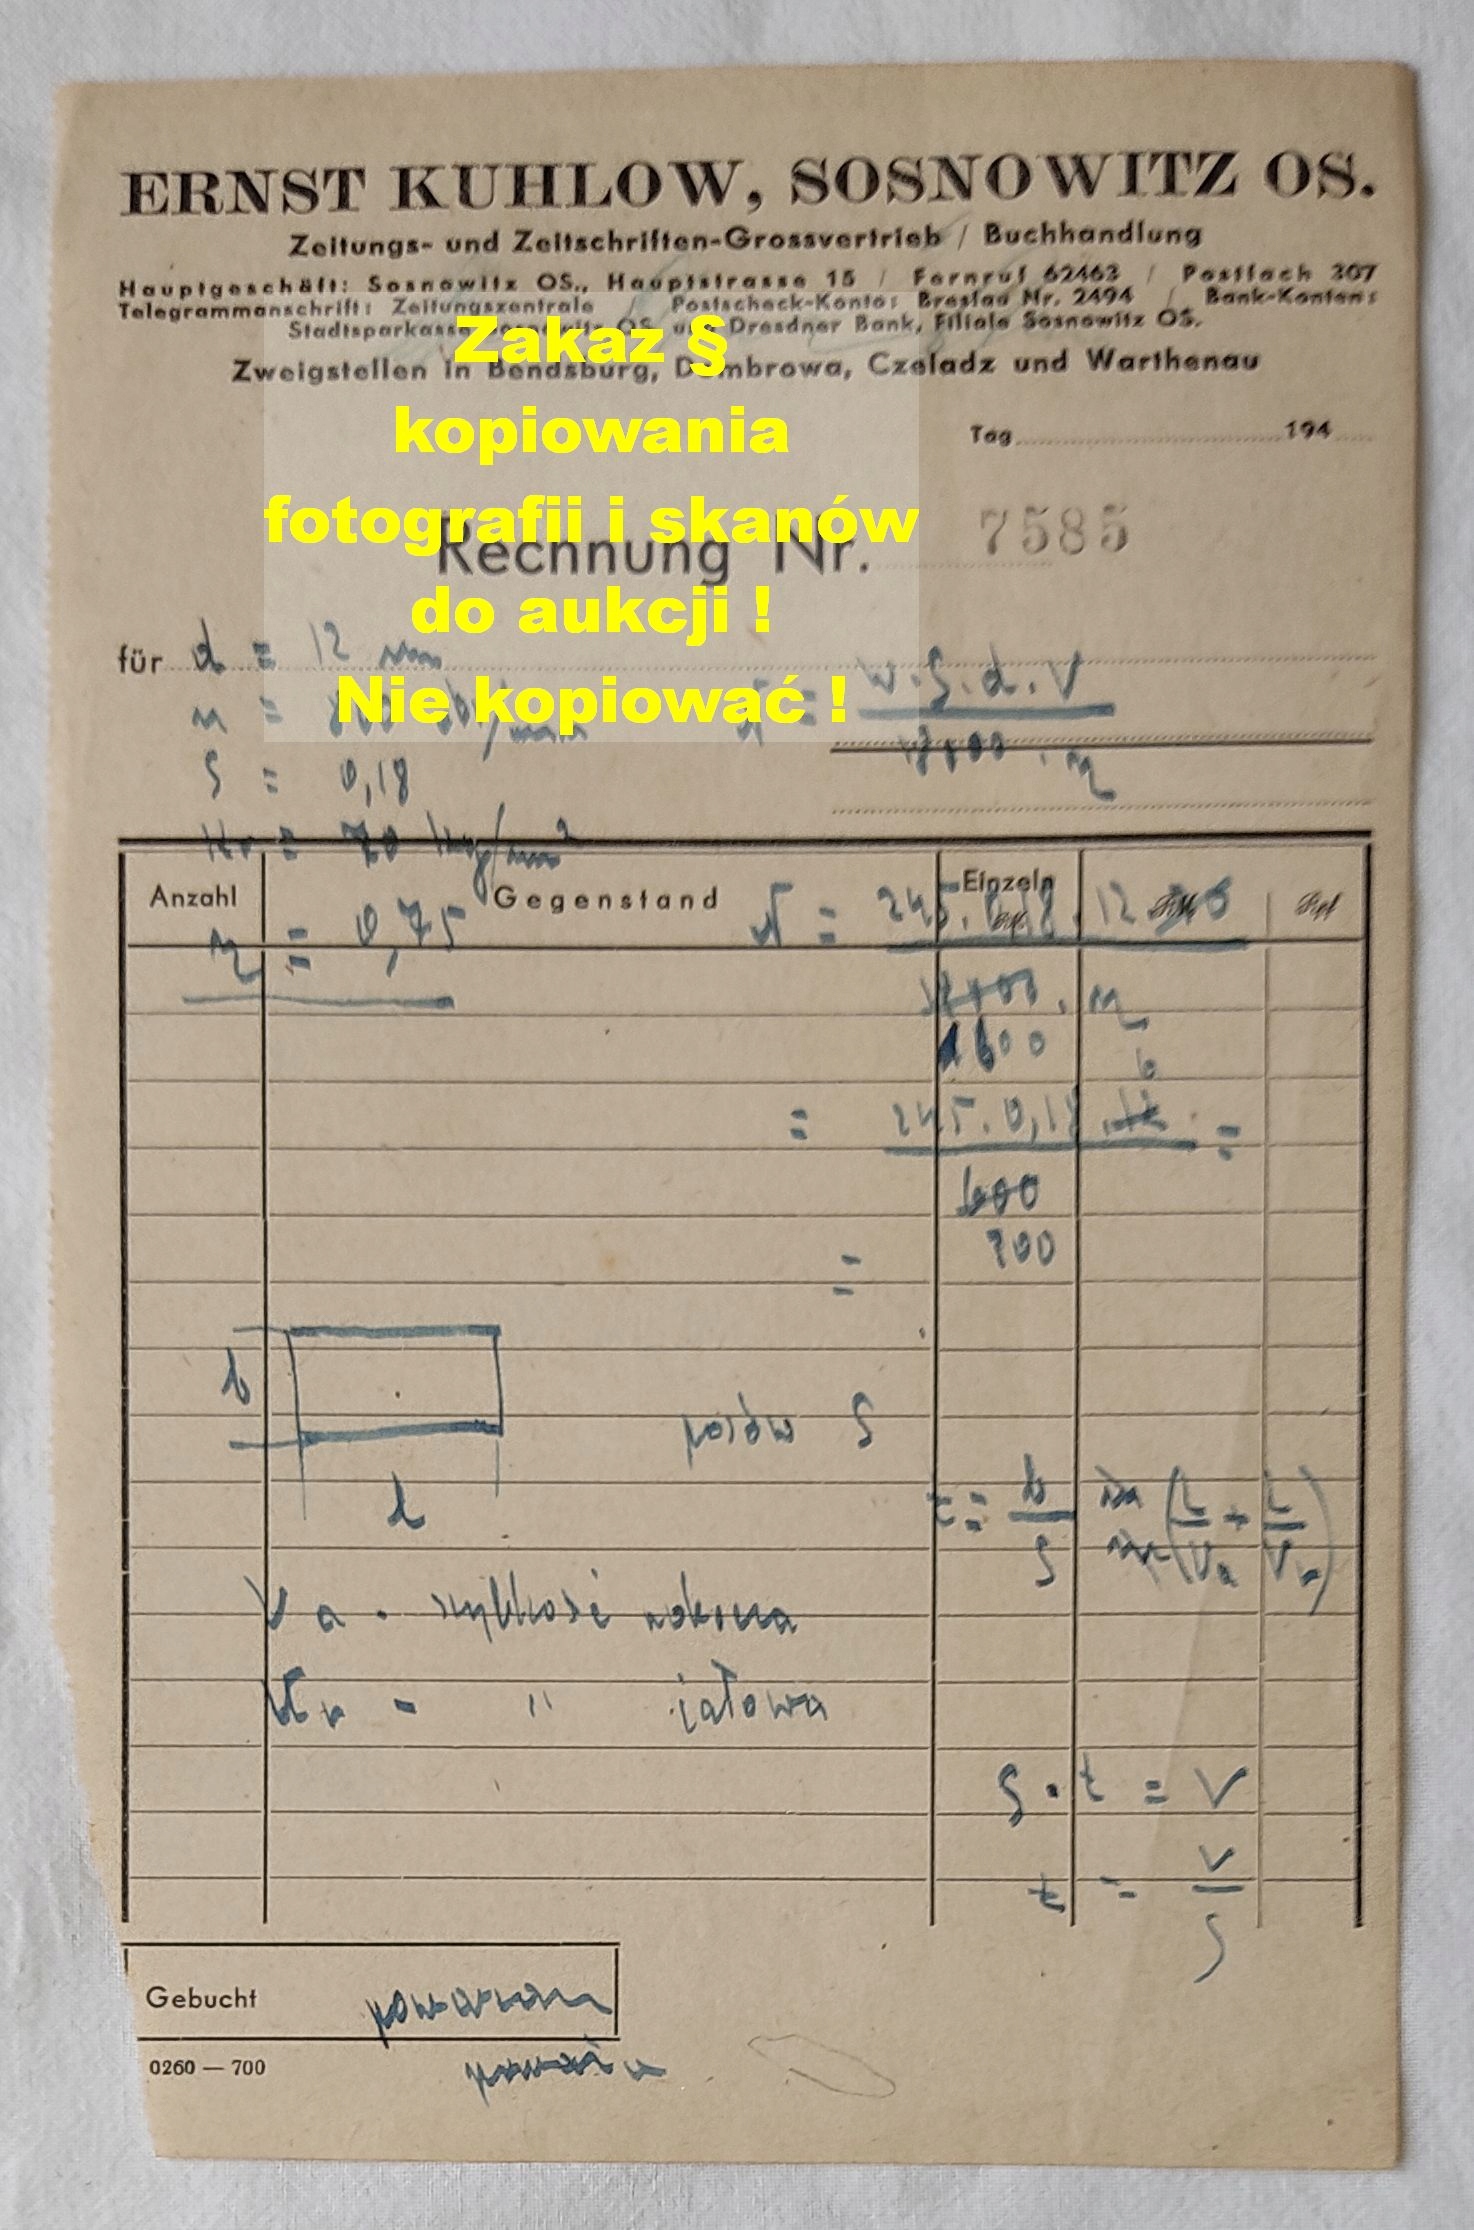 ERNST KUHLOW, SOSNOWITZ OS.
Zeitungs- und Zeitschriften-Grossvertrieb / Buchhandlung
Hauptgeschäft: Sosnowitz OS., Hauptstrasse 15 / Fernruf 62463 / Postfach 207
Telegrammanschrift: Zeitungszentrale / Postscheck-Konto: Breslau Nr. 2494 / Bank-Konten:
Stadtsparkasse Sosnowitz OS. und Dresdner Bank, Filiale Sosnowitz OS.
Zweigstellen in Bendsburg, Dombrowa, Czeladz und Warthenau
Zakaz §
kopiowania
fotografii i skanów
do aukcji !
Nie kopiować !
Tag 194
Rechnung Nr. 7585
für d = 12 mm
n =
S = 0,18
= 70 kg/mm²
η = 0,75
w . S . d . V
Anzahl Gegenstand Einzeln
N = 245 . 0,18 . 12
. η
600
6
= 245 . 0,18 . 12 =
600
200
=
b
posów S
L
t = b
S
( L + L )
Va Vr
Va - szybkość robocza
Vr - " jałowa
S . t = V
t = V
S
Gebucht
0260 — 700